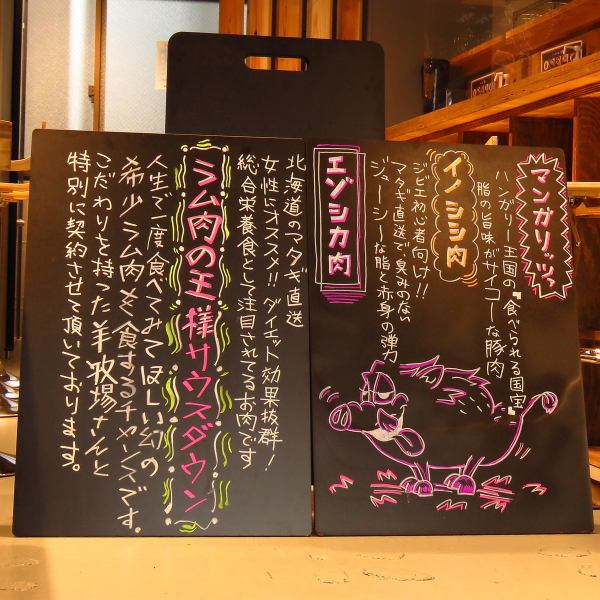 マンガリッツァ
ハンガリー王国の"食べられる国宝"
脂の旨味がサイコーな豚肉
イノシシ肉
ジビエ初心者向け!!
マタギ直送で、臭みのない
ジューシーな脂と赤身の弾力
エゾシカ肉
北海道のマタギ直送
女性にオススメ!! ダイエット効果抜群!
総合栄養食として注目されてるお肉です
ラム肉の王様サウスダウン
人生で一度食べてみてほしい幻の
希少ラム肉を食するチャンスです。
こだわりを持った羊牧場さんと
特別に契約させて頂いております。